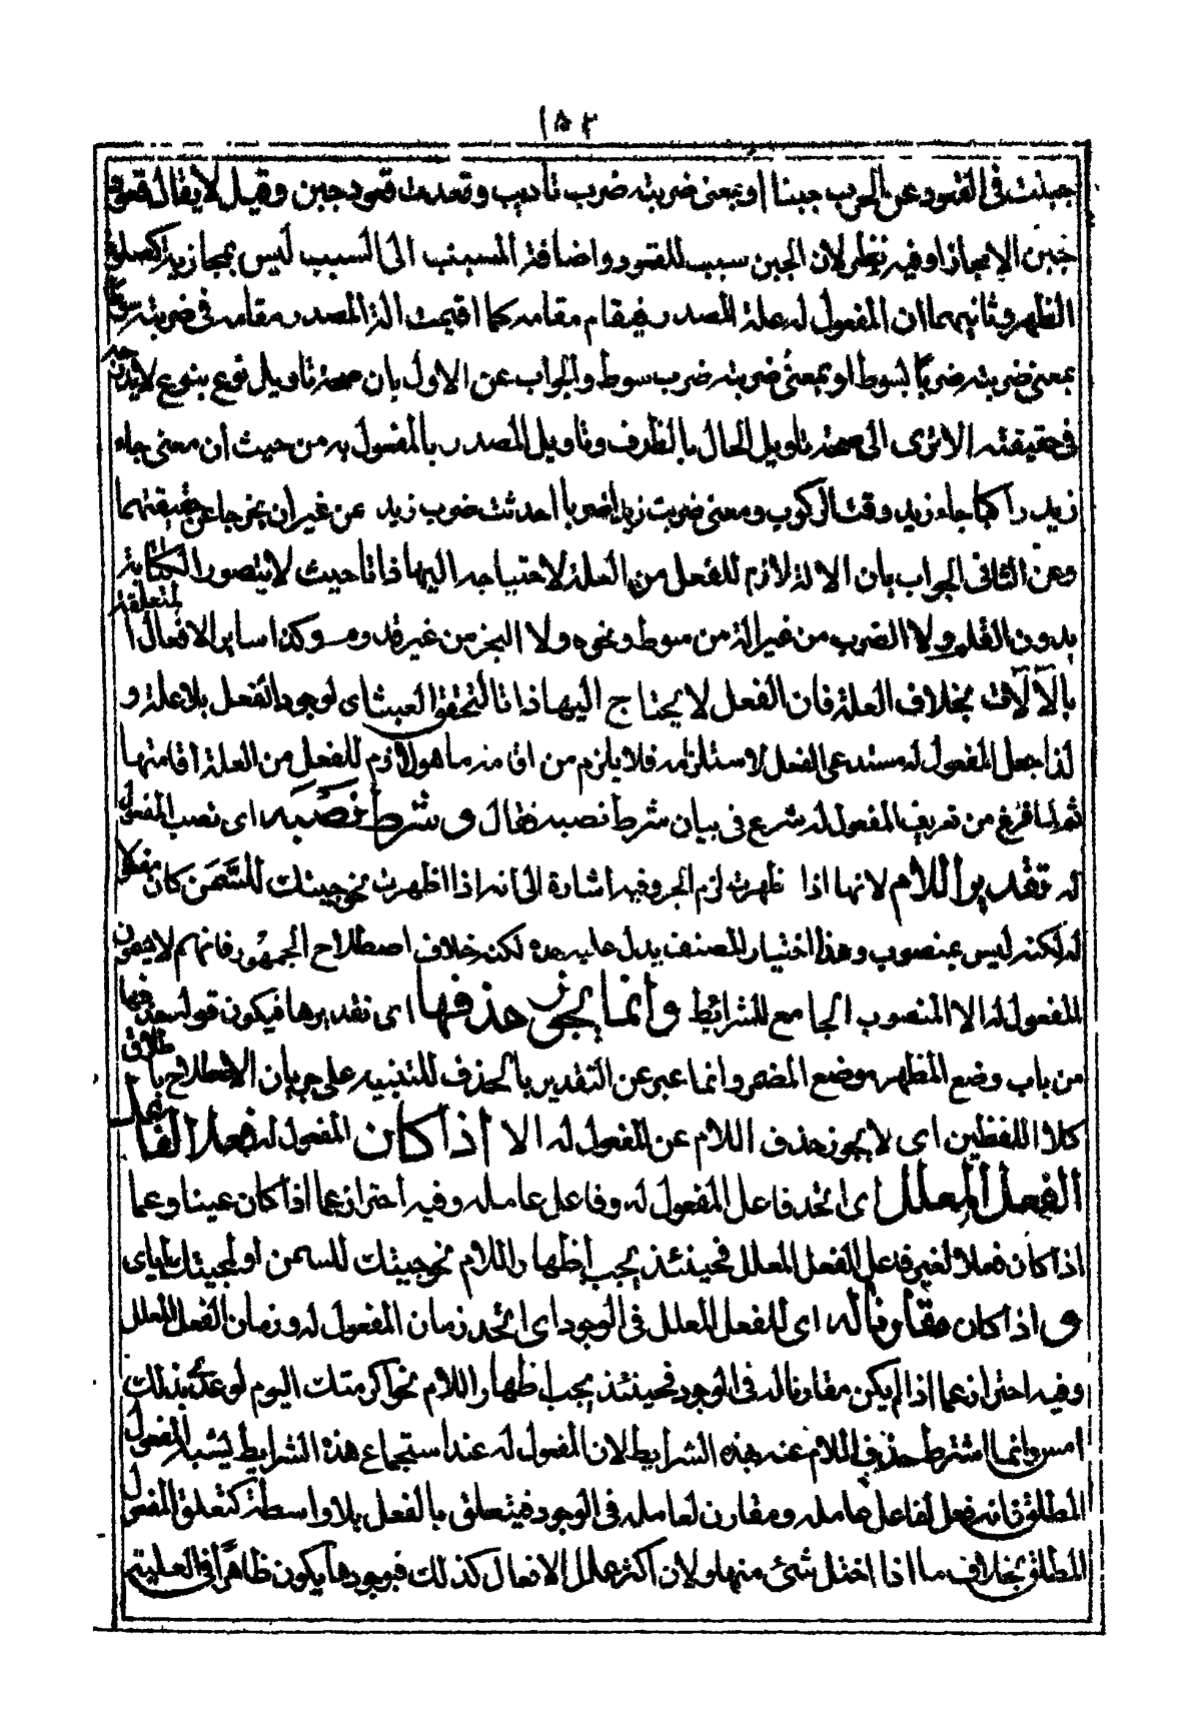 ١٥٢
جبنت فى القعود عن الحرب جبنا او بمعنى ضربته ضرب تأديب وقعدت قعود جبن وقيل لا يقال قعود
جبن الا مجازا وفيه نظر لان الجبن سبب للقعود واضافة المسبب الى السبب ليس بمجازية كصلوة
الظهر وثانيهما ان المفعول له علة المصدر فيقام مقامه كما اقيمت الة المصدر مقامه فى ضربته سوطا
بمعنى ضربته ضربا بسوط او بمعنى ضربته ضرب سوط والجواب عن الاول بان صحة تاويل نوع بنوع لا يدخله
فى حقيقته الا ترى الى صحة تاويل الحال بالظرف وتاويل المصدر بالمفعول به من حيث ان معنى جاء
زيد راكبا جاء زيد وقت الركوب ومعنى ضربت زيدا ضربا احدثت ضرب زيد عن غير ان يخرجا عن حقيقتهما
وعن الثانى الجواب بان الالة لازم للفعل من العلة لاحتياجه اليها ذاتا حيث لا يتصور الكتابة
بدون القلم ولا الضرب من غير الة من سوط ونحوه ولا النجر من غير قدوم وكذا ساير الافعال المتعلقة
بالآلات بخلاف العلة فان الفعل لا يحتاج اليها ذاتا لتحقق العبث اى لوجود الفعل بلا علة و
لذا جعل المفعول له مستدعى الفعل لا مستلزمه فلا يلزم من اقامة ما هو لازم للفعل من العلة اقامتها
ثم لما فرغ من تعريف المفعول له شرع فى بيان شرط نصبه فقال وشرط نصبه اى نصب المفعول
له تقدير اللام لانها اذا ظهرت لزم الجر وفيه اشارة الى انه اذا اظهرت نحو جيتك للسمن كان مفعولا
له لكنه ليس بمنصوب وهذا اختيار المصنف يدل عليه حده لكنه خلاف اصطلاح الجمهور فانهم لا يسمون
المفعول له الا المنصوب الجامع للشرائط وانما يجوز حذفها اى تقديرها فيكون قوله حذفها
من باب وضع المظهر موضع المضمر وانما عبر عن التقدير بالحذف للتنبيه على جريان الاصطلاح باطلاق
كلا اللفظين اى لا يجوز حذف اللام عن المفعول له الا اذا كان المفعول له فعلا لفاعل
الفعل المعلل اى اتحد فاعل المفعول له وفاعل عامله وفيه احتراز عما اذا كان عينا وعما
اذا كان فعلا لغير فاعل الفعل المعلل فحينئذ يجب اظهار اللام نحو جيتك للسمن او لمجيئك اياى
واذا كان مقارنا له اى للفعل المعلل فى الوجود اى اتحد زمان المفعول له وزمان الفعل المعلل
وفيه احتراز عما اذا لم يكن مقارنا له فى الوجود فحينئذ يجب اظهار اللام نحو اكرمتك اليوم لوعدى بذلك
امس وانما اشترط حذف اللام عنه بهذه الشرايط لان المفعول له عند استجماع هذه الشرايط يشبه المفعول
المطلق فانه فعل لفاعل عامله ومقارن لعامله فى الوجود فيتعلق بالفعل بلا واسطة كتعلق المفعول
المطلق بخلاف ما اذا اختل شئ منها ولان اكثر علل الافعال كذلك فبوجودها يكون ظاهرا فى العلية